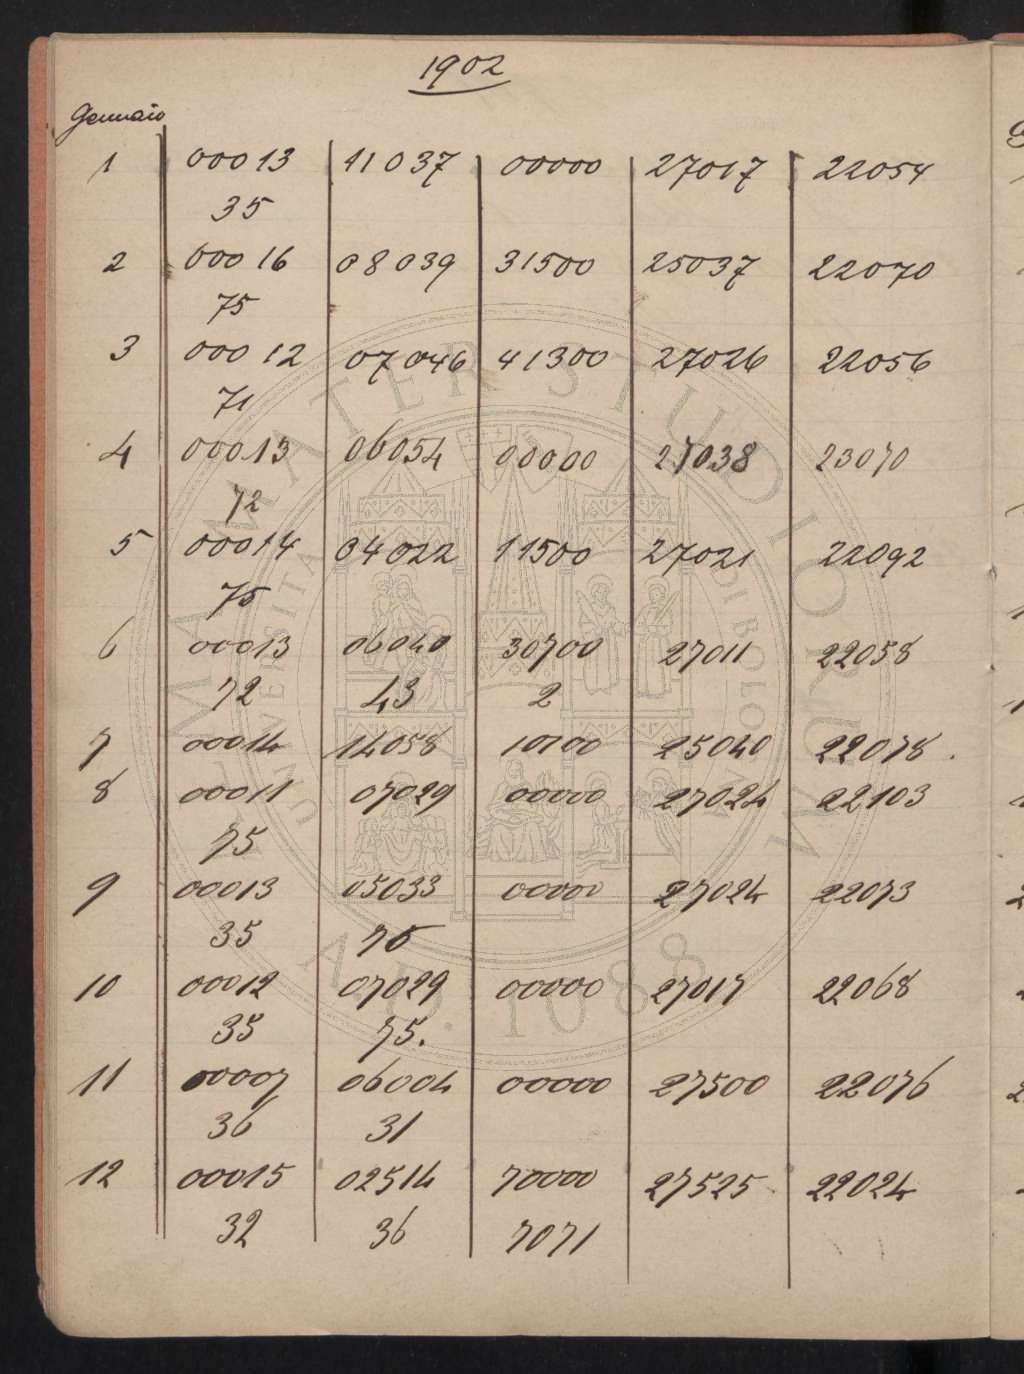 1902
Gennaio
1 00013 11037 00000 27017 22054
35
2 00016 08039 31500 25037 22070
75
3 00012 07046 41300 27026 22056
71
4 00013 06054 00000 27038 23070
72
5 00014 04022 11500 27021 22092
75
6 00013 06040 30700 27011 22058
72 43 2
7 00014 14058 10700 25040 22078
8 00011 07029 00000 27024 22103
75
9 00013 05033 00000 27024 22073
35 75
10 00012 07029 00000 27017 22068
35 75.
11 00007 06004 00000 27500 22076
36 31
12 00015 02514 70000 27525 22024
32 36 7071
ALMA MATER STUDIORUM
A.D. 1088